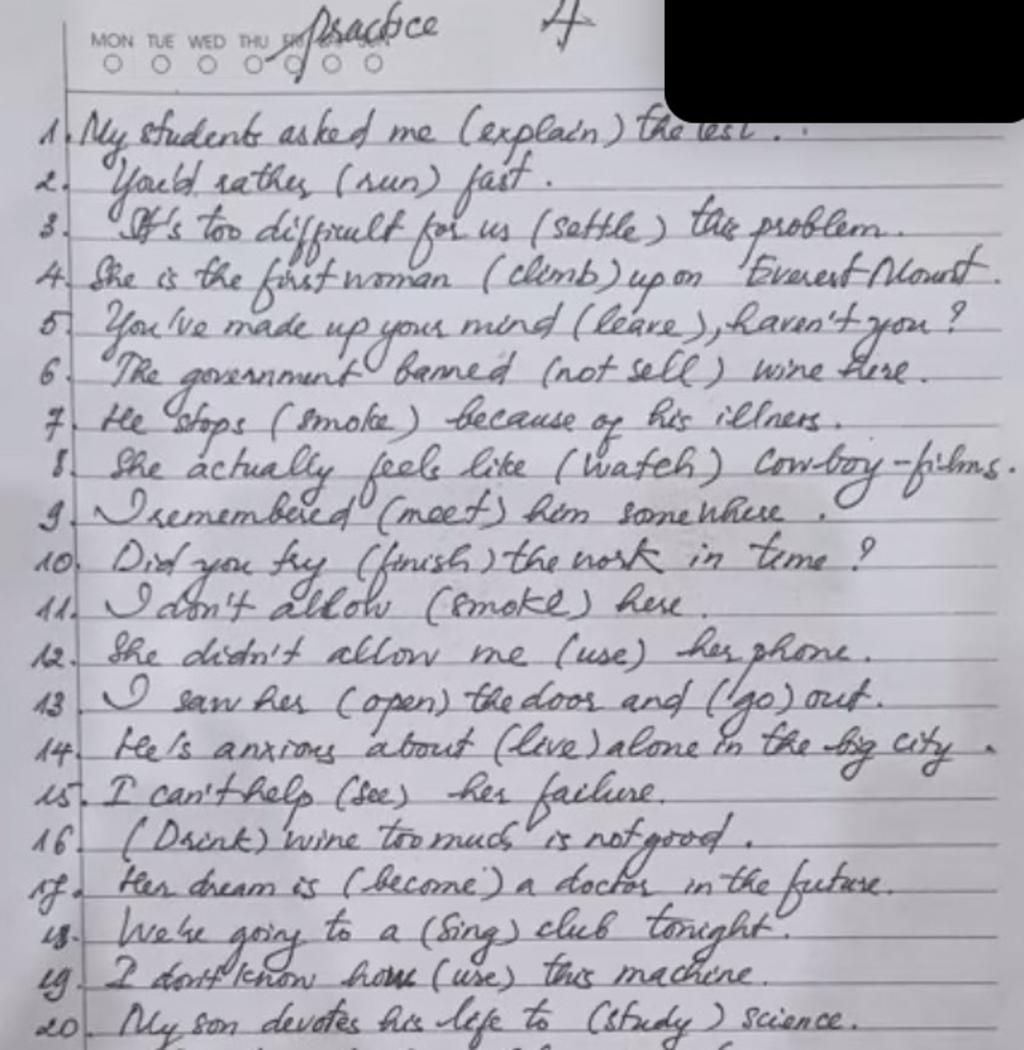 practice 4
MON TUE WED THU FRI SUN
1. My students asked me (explain) the test.
2. You'd rather (run) fast.
3. It's too difficult for us (settle) this problem.
4. She is the first woman (climb) upon Everest Mount.
5. You've made up your mind (leave), haven't you?
6. The government banned (not sell) wine here.
7. He stops (smoke) because of his illness.
8. She actually feels like (watch) cowboy-films.
9. I remembered (meet) him somewhere.
10. Did you try (finish) the work in time?
11. I don't allow (smoke) here.
12. She didn't allow me (use) her phone.
13. I saw her (open) the door and (go) out.
14. He's anxious about (live) alone in the big city.
15. I can't help (see) her failure.
16. (Drink) wine too much is not good.
17. Her dream is (become) a doctor in the future.
18. We're going to a (sing) club tonight.
19. I don't know how (use) this machine.
20. My son devotes his life to (study) science.